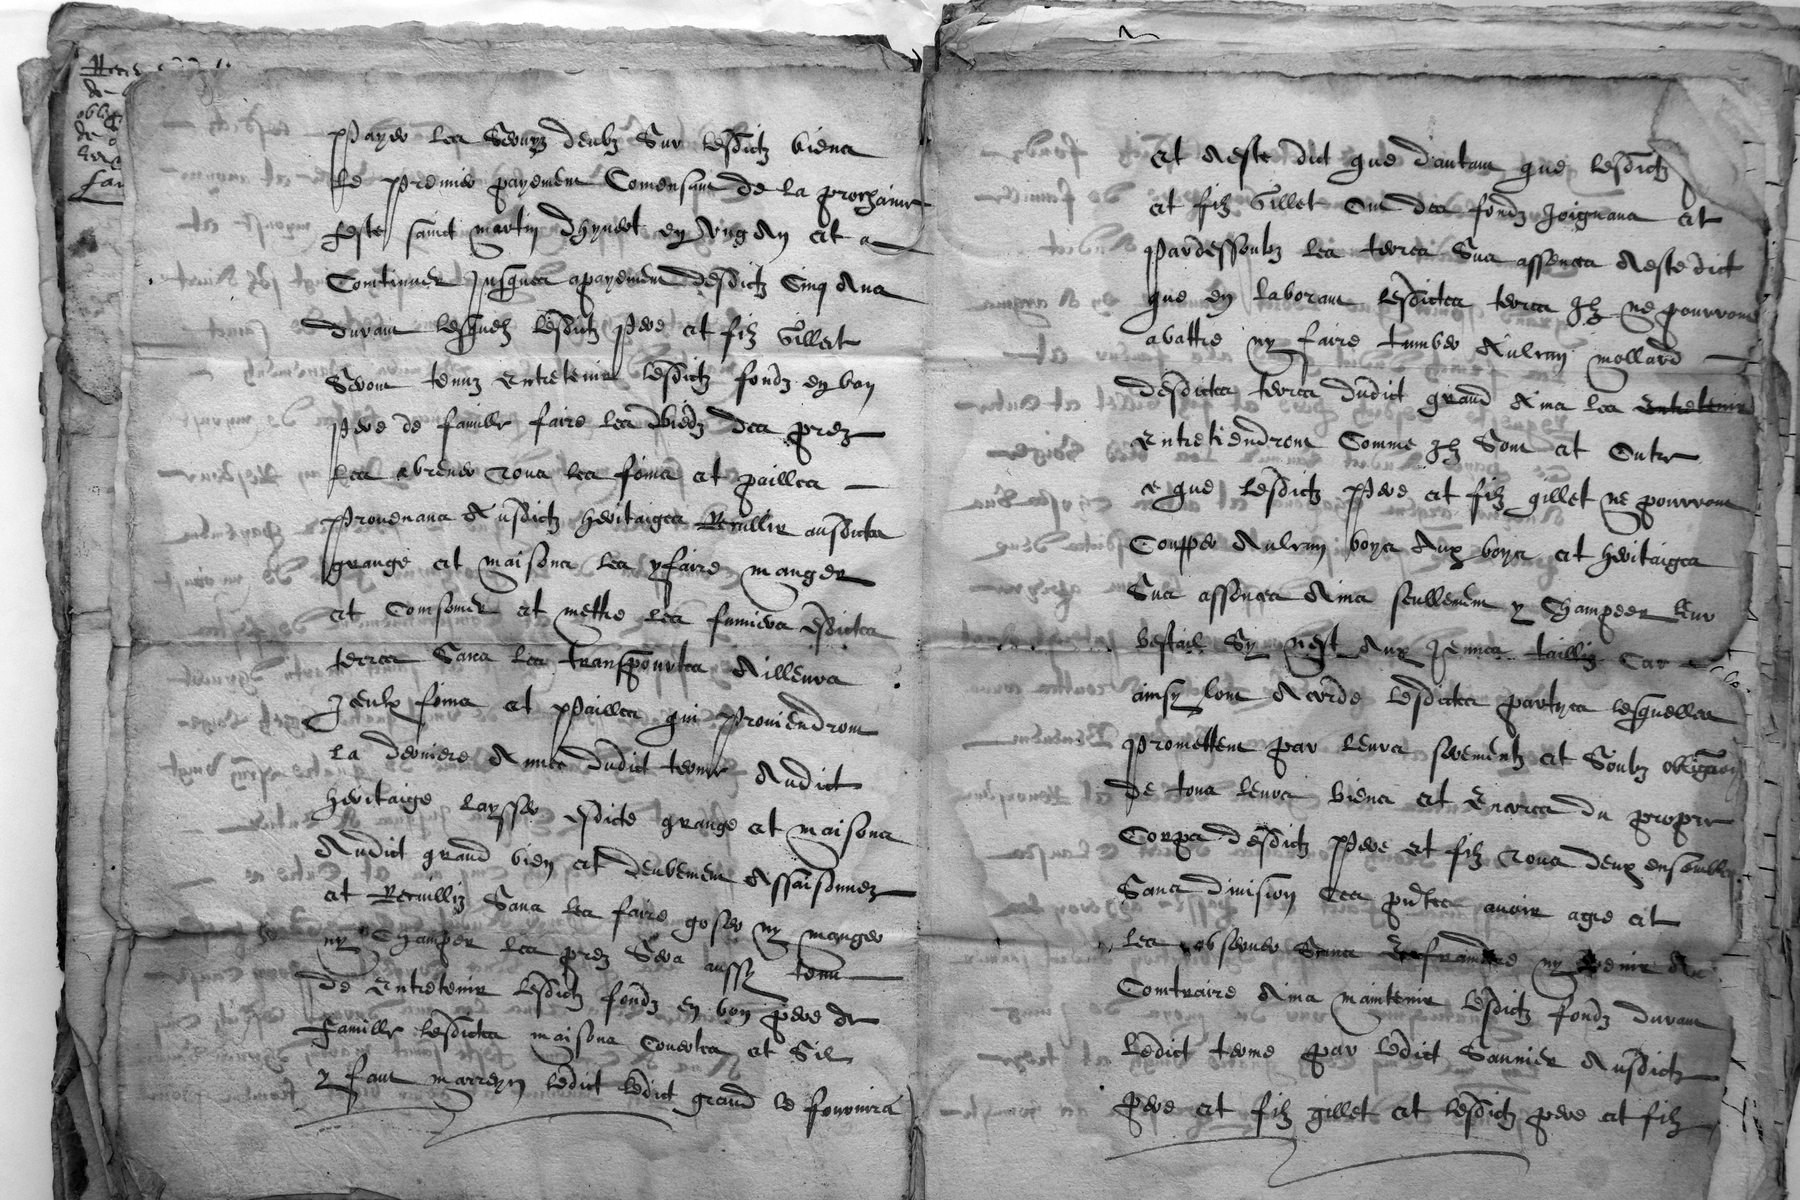 Payer les servyz deubz sur lesdictz biens
le premier payement Comensant de la prochaine
feste sainct martin dhyvert en vng An et a
Continuer Jusques apayement desdictz Cinq Ans
durant lesquelz lesdictz Pere et filz Gillet
Seront tenuz entretenir lesdictz fondz en bon
Pere de famille faire les biedz des prez
les abrever tous les foins et pailles
Provenans Ausdictz heritaiges Reculhir ausdictes
grange et maisons les y faire manger
et Consomer et mettre les fumiers esdictes
terres Sans les transpourtes Ailleurs
Iceulx foins et Pailles qui Proviendront
la derniere Annee dudict terme Audict
heritaige laysser esdicte grange et maisons
Audict grand bien et deubement Assaisonnez
et Recullliz Sans les faire goster ny manger
ny Champer les prez Sera aussy tenu
de entretenir lesdictz fondz en bon pere de
famille lesdictes maisons Couertes et Sil
y faut marreyn ledict ledict grand le fournira
et Aeste dict que d'autant que lesdictz
et filz Gillet Ont des fondz Joignans et
Pardessoubz les terres Sus assences Aeste dict
que en laborant lesdictes terres Ilz ne pourront
abattre ny faire tumber Aulcun mollard
desdictes terres dudict grand Ains les entretenir
Entretiendront Comme Ilz Sont et Outre
ce que lesdictz Pere et filz gillet ne pourront
Coupper Aulcun boys Aux boys et heritaiges
Sus assences Ains seullement y Champeer leur
bestail Sy nest Aux Jeunes tailliz Car
ainsy lont Acorde lesdictes partyes lesquelles
Promettent par leurs serementz et Soubz obligation
de tous leurs biens et Encores du propre
Corps desdictz Pere et filz tous deux ensembles
Sans division Ces pntes auoir agre et
les observer Sans Enfraindre ny Venir Au
Contraire Ains maintenir lesdictz fondz durant
ledict terme par ledict Saunier Ausdictz
pere et filz gillet et lesdictz pere et filz